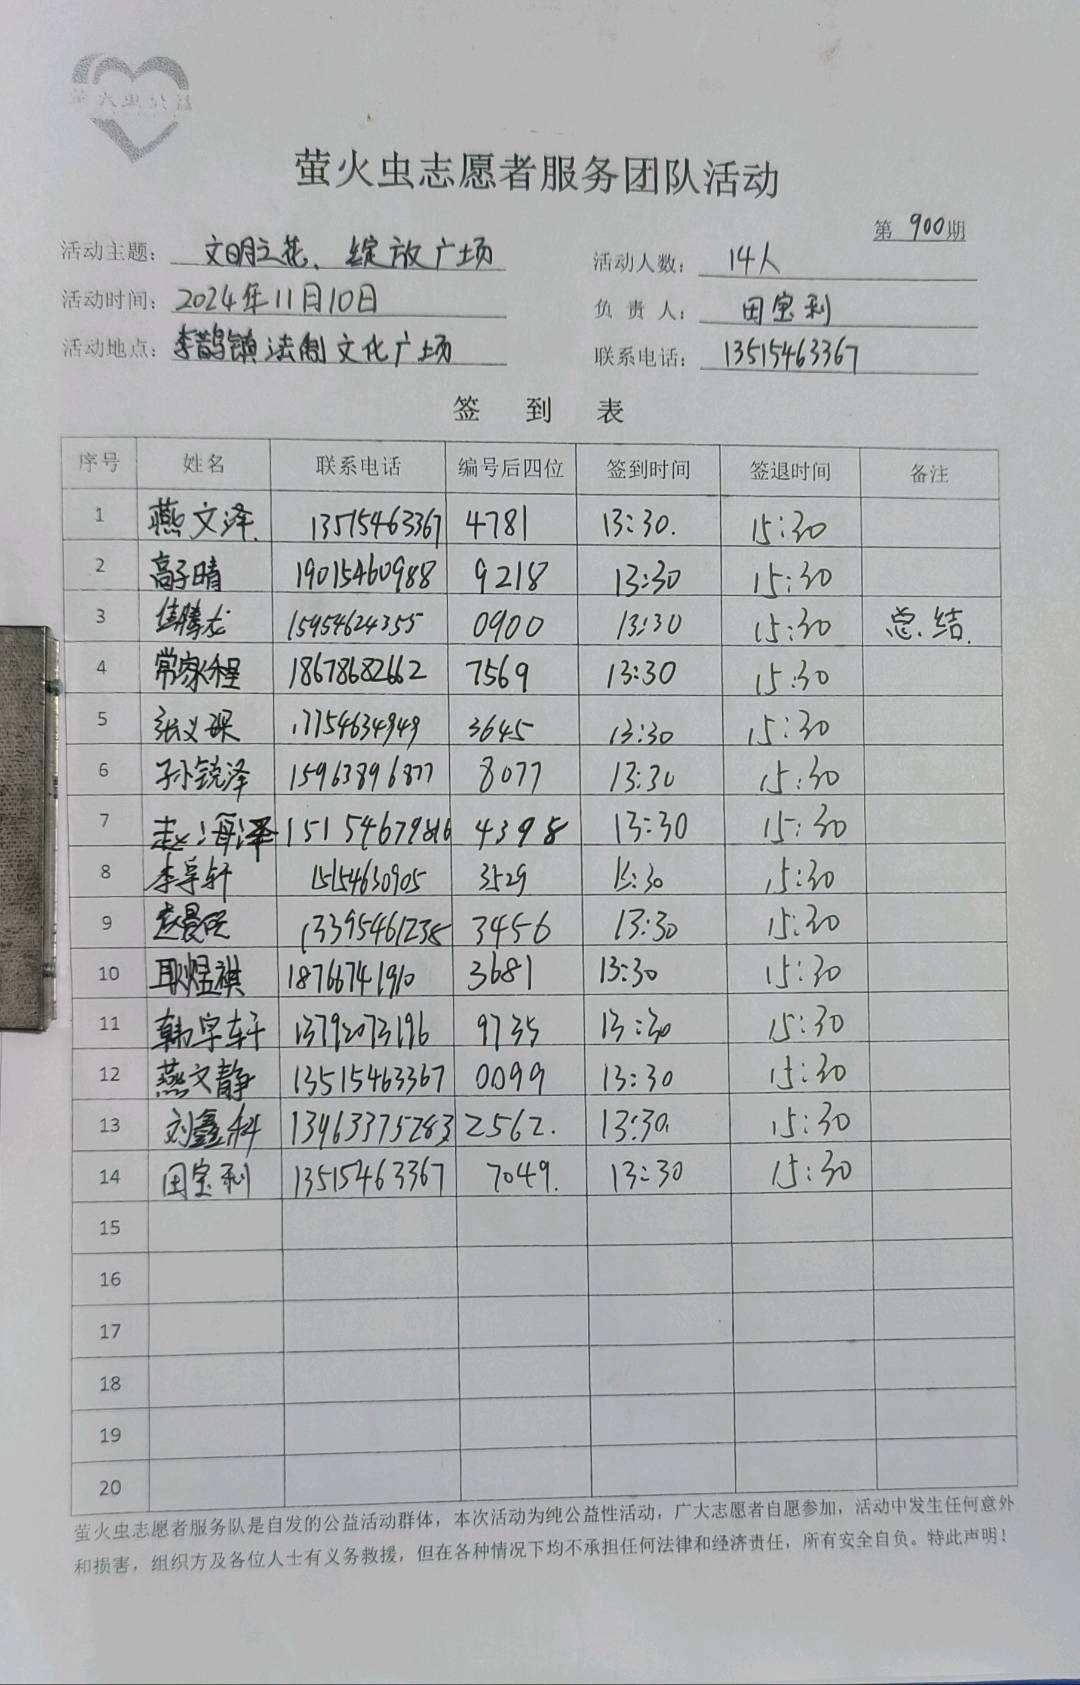 萤火虫志愿者服务团队活动
第 900期
活动主题： 文明之花、绽放广场 活动人数： 14人
活动时间： 2024年11月10日 负 责 人： 田宝利
活动地点： 李鹊镇法制文化广场 联系电话： 13515463367
签 到 表
序号 姓名 联系电话 编号后四位 签到时间 签退时间 备注
1 燕文泽. 13515463367 4781 13:30. 15:30
2 高子晴 19015460988 9218 13:30 15:30
3 15954624355 0900 13:30 15:30 总.结.
4 常家程 18678682662 7569 13:30 15:30
5 张义琛 17754634949 3645 13:30 15:30
6 孙锐泽 15963896877 8077 13:30 15:30
7 赵海泽 15154679816 4398 13:30 15:30
8 15154630905 3529 15:30
9 赵晨 13395461238 3456 13:30 15:30
10 耿煜祺 18766741910 3681 13:30 15:30
11 韩字轩 13792073196 9735 13:30 15:30
12 燕文静 13515463367 0099 13:30 15:30
13 刘鑫科 13463375283 2562. 13:30. 15:30
14 田宝利 13515463367 7049. 13:30 15:30
15
16
17
18
19
20
萤火虫志愿者服务队是自发的公益活动群体，本次活动为纯公益性活动，广大志愿者自愿参加，活动中发生任何意外
和损害，组织方及各位人士有义务救援，但在各种情况下均不承担任何法律和经济责任，所有安全自负。特此声明！